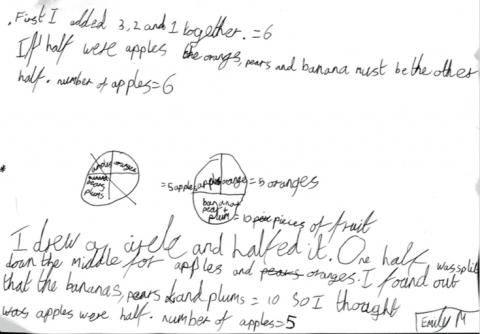 . First I added 3, 2 and 1 together. = 6
If half were apples the oranges, pears and banana must be the other
half. number of apples = 6
*
apples oranges
pears
plums
= 5 apples apples orange = 5 oranges
bananas
pears +
plum = 10 pieces of fruit
I drew a circle and halfed it. One half was split
down the middle for apples and pears oranges. I found out
that the bananas, pears and plums = 10 so I thought
was apples were half. number of apples = 5
Emily M